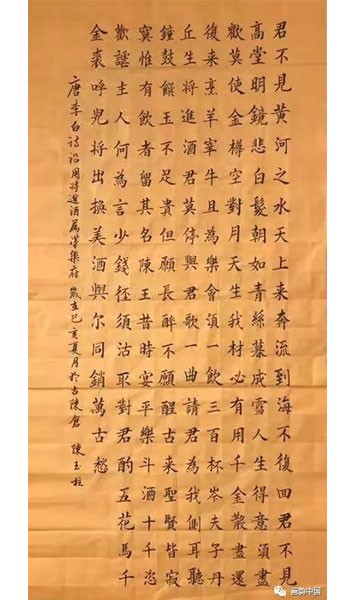 君不見黄河之水天上来奔流到海不復回君不見
高堂明鏡悲白髮朝如青絲暮成雪人生得意須盡
歡莫使金樽空對月天生我材必有用千金散盡還
復来烹羊宰牛且為樂會須一飲三百杯岑夫子丹
丘生将進酒君莫停與君歌一曲請君為我側耳聽
鐘鼓饌玉不足貴但願長醉不願醒古来聖賢皆寂
寞惟有飲者留其名陳王昔時宴平樂斗酒十千恣
歡謔主人何為言少錢徑須沽取對君酌五花馬千
金裘呼兒将出換美酒與尔同銷萬古愁
唐李白詩沿用将進酒為漢樂府 歲在己亥夏月於古陳倉 陳玉
画韵中国